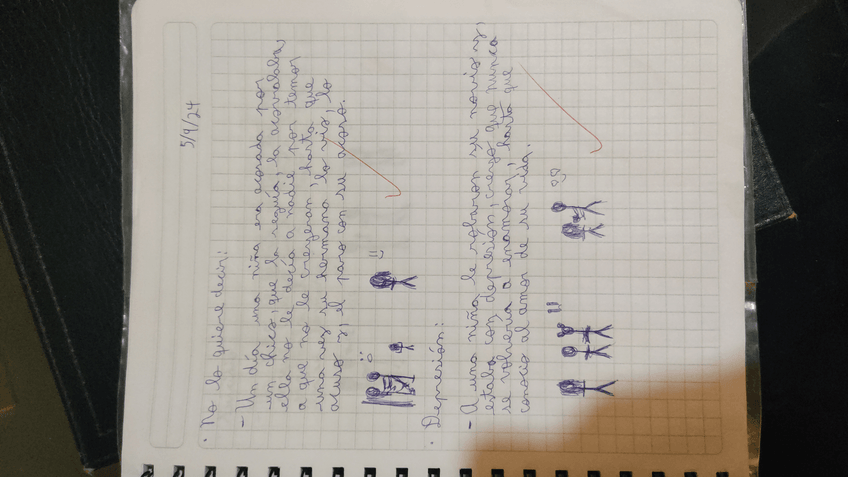 5/9/24
• No lo quiere decir:
- Un día una niña era acosada por
un chico, que la seguía, la acorralaba,
ella no le decía a nadie por temor
a que no le creyeran, hasta que
una vez su hermana la vió, lo
acuso y el paro con su acoso.
:(
:)
• Depresión:
- A una niña le robaron su novio y,
estaba con depresión, creyó que nunca
se volvería a enamorar, hasta que
conoció al amor de su vida.